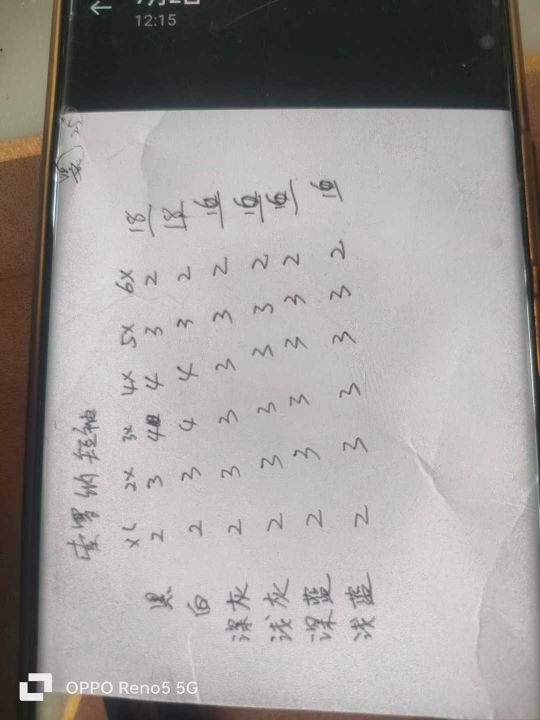 12:15
索罗纳短袖
XL 2X 3X 4X 5X 6X
黑 2 3 4 4 3 2 18
白 2 3 4 4 3 2 18
深灰 2 3 3 3 3 2 16
浅灰 2 3 3 3 3 2 16
深蓝 2 3 3 3 3 2 16
浅蓝 2 3 3 3 3 2 16
OPPO Reno5 5G